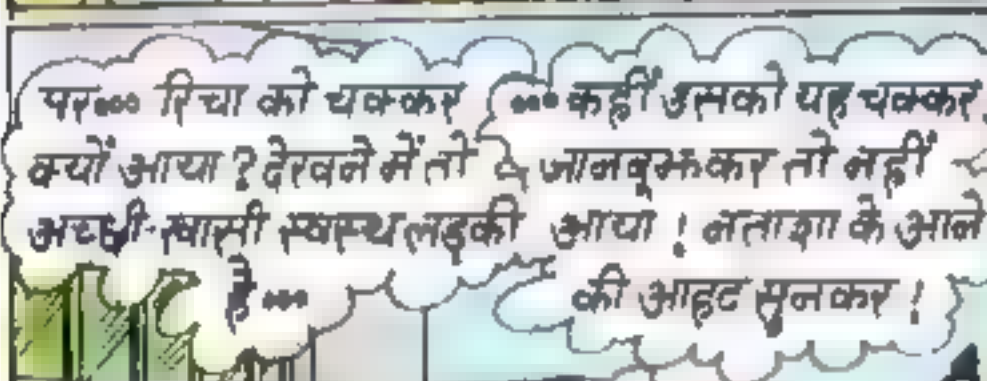 पर... रिचा को चक्कर
क्यों आया? देखने में तो
अच्छी-खासी स्वस्थ लड़की
है...
...कहीं उसको यह चक्कर
जानबूझकर तो नहीं
आया! नताशा के आने
की आहट सुनकर!